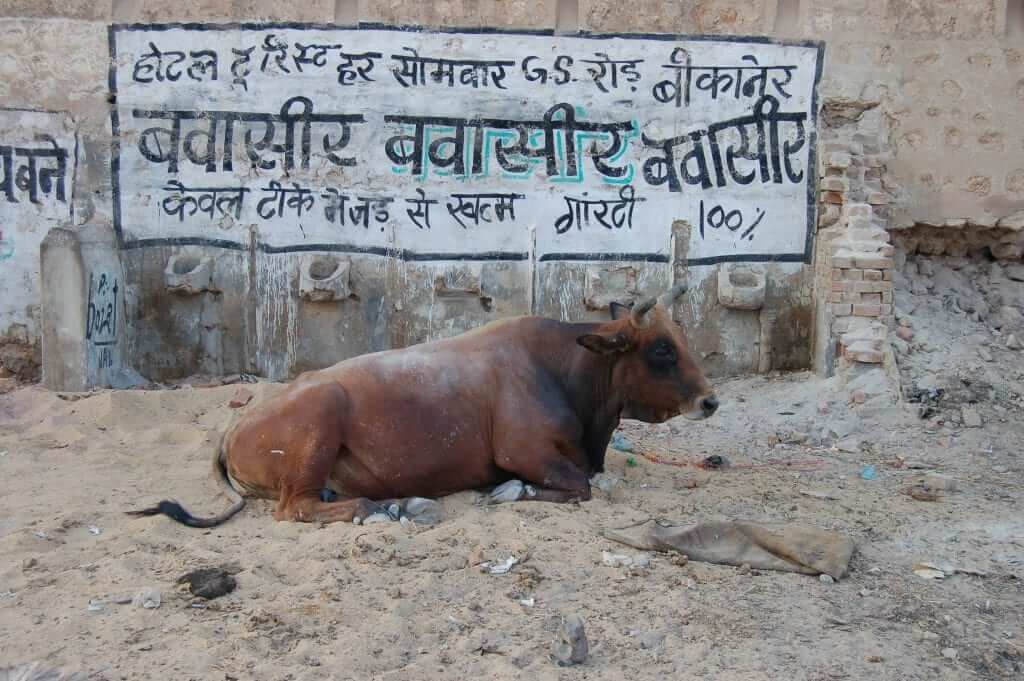 होटल टूरिस्ट हर सोमवार G.S. रोड़ बीकानेर
बवासीर बवासीर बवासीर
केवल टीके मेजड़ से खत्म गांरटी 100%